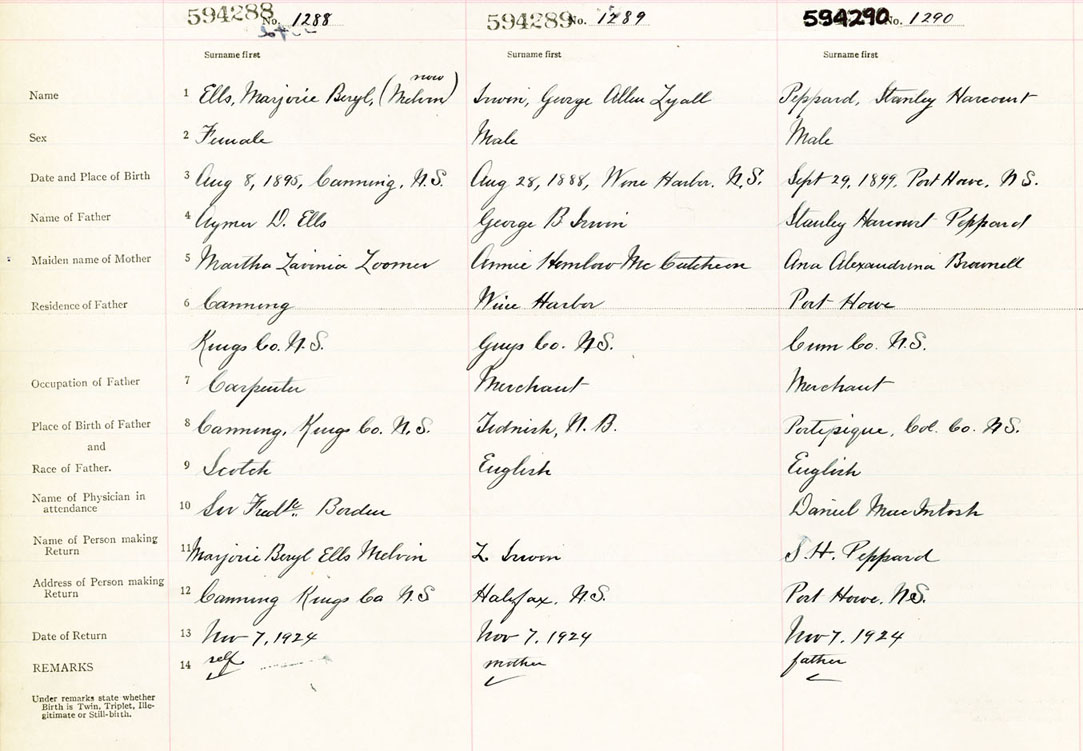 594288 No. 1288 594289 No. 1289 594290 No. 1290
Surname first Surname first Surname first
Name 1 Ells, Marjorie Beryl, (now Melvin) Irwin, George Allen Lyall Peppard, Stanley Harcourt
Sex 2 Female Male Male
Date and Place of Birth 3 Aug 8, 1895, Canning, N.S. Aug 28, 1888, Wine Harbor, N.S. Sept 29, 1899, Port Howe, N.S.
Name of Father 4 Aymer D. Ells George B Irwin Stanley Harcourt Peppard
Maiden name of Mother 5 Martha Lavinia Loomer Annie Henlow McCutcheon Ana Alexandrina Brownell
Residence of Father 6 Canning Wine Harbor Port Howe
Kings Co. N.S. Guys Co. N.S. Cum Co. N.S.
Occupation of Father 7 Carpenter Merchant Merchant
Place of Birth of Father 8 Canning, Kings Co. N.S. Tidnish, N.B. Portipique, Col. Co. N.S.
and
Race of Father. 9 Scotch English English
Name of Physician in
attendance 10 Sir Fredk. Borden Daniel MacIntosh
Name of Person making
Return 11 Marjorie Beryl Ells Melvin L Irwin S.H. Peppard
Address of Person making
Return 12 Canning Kings Co N.S Halifax, N.S. Port Howe, N.S.
Date of Return 13 Nov 7, 1924 Nov 7, 1924 Nov 7, 1924
REMARKS 14 self mother father
Under remarks state whether
Birth is Twin, Triplet, Ille-
gitimate or Still-birth.